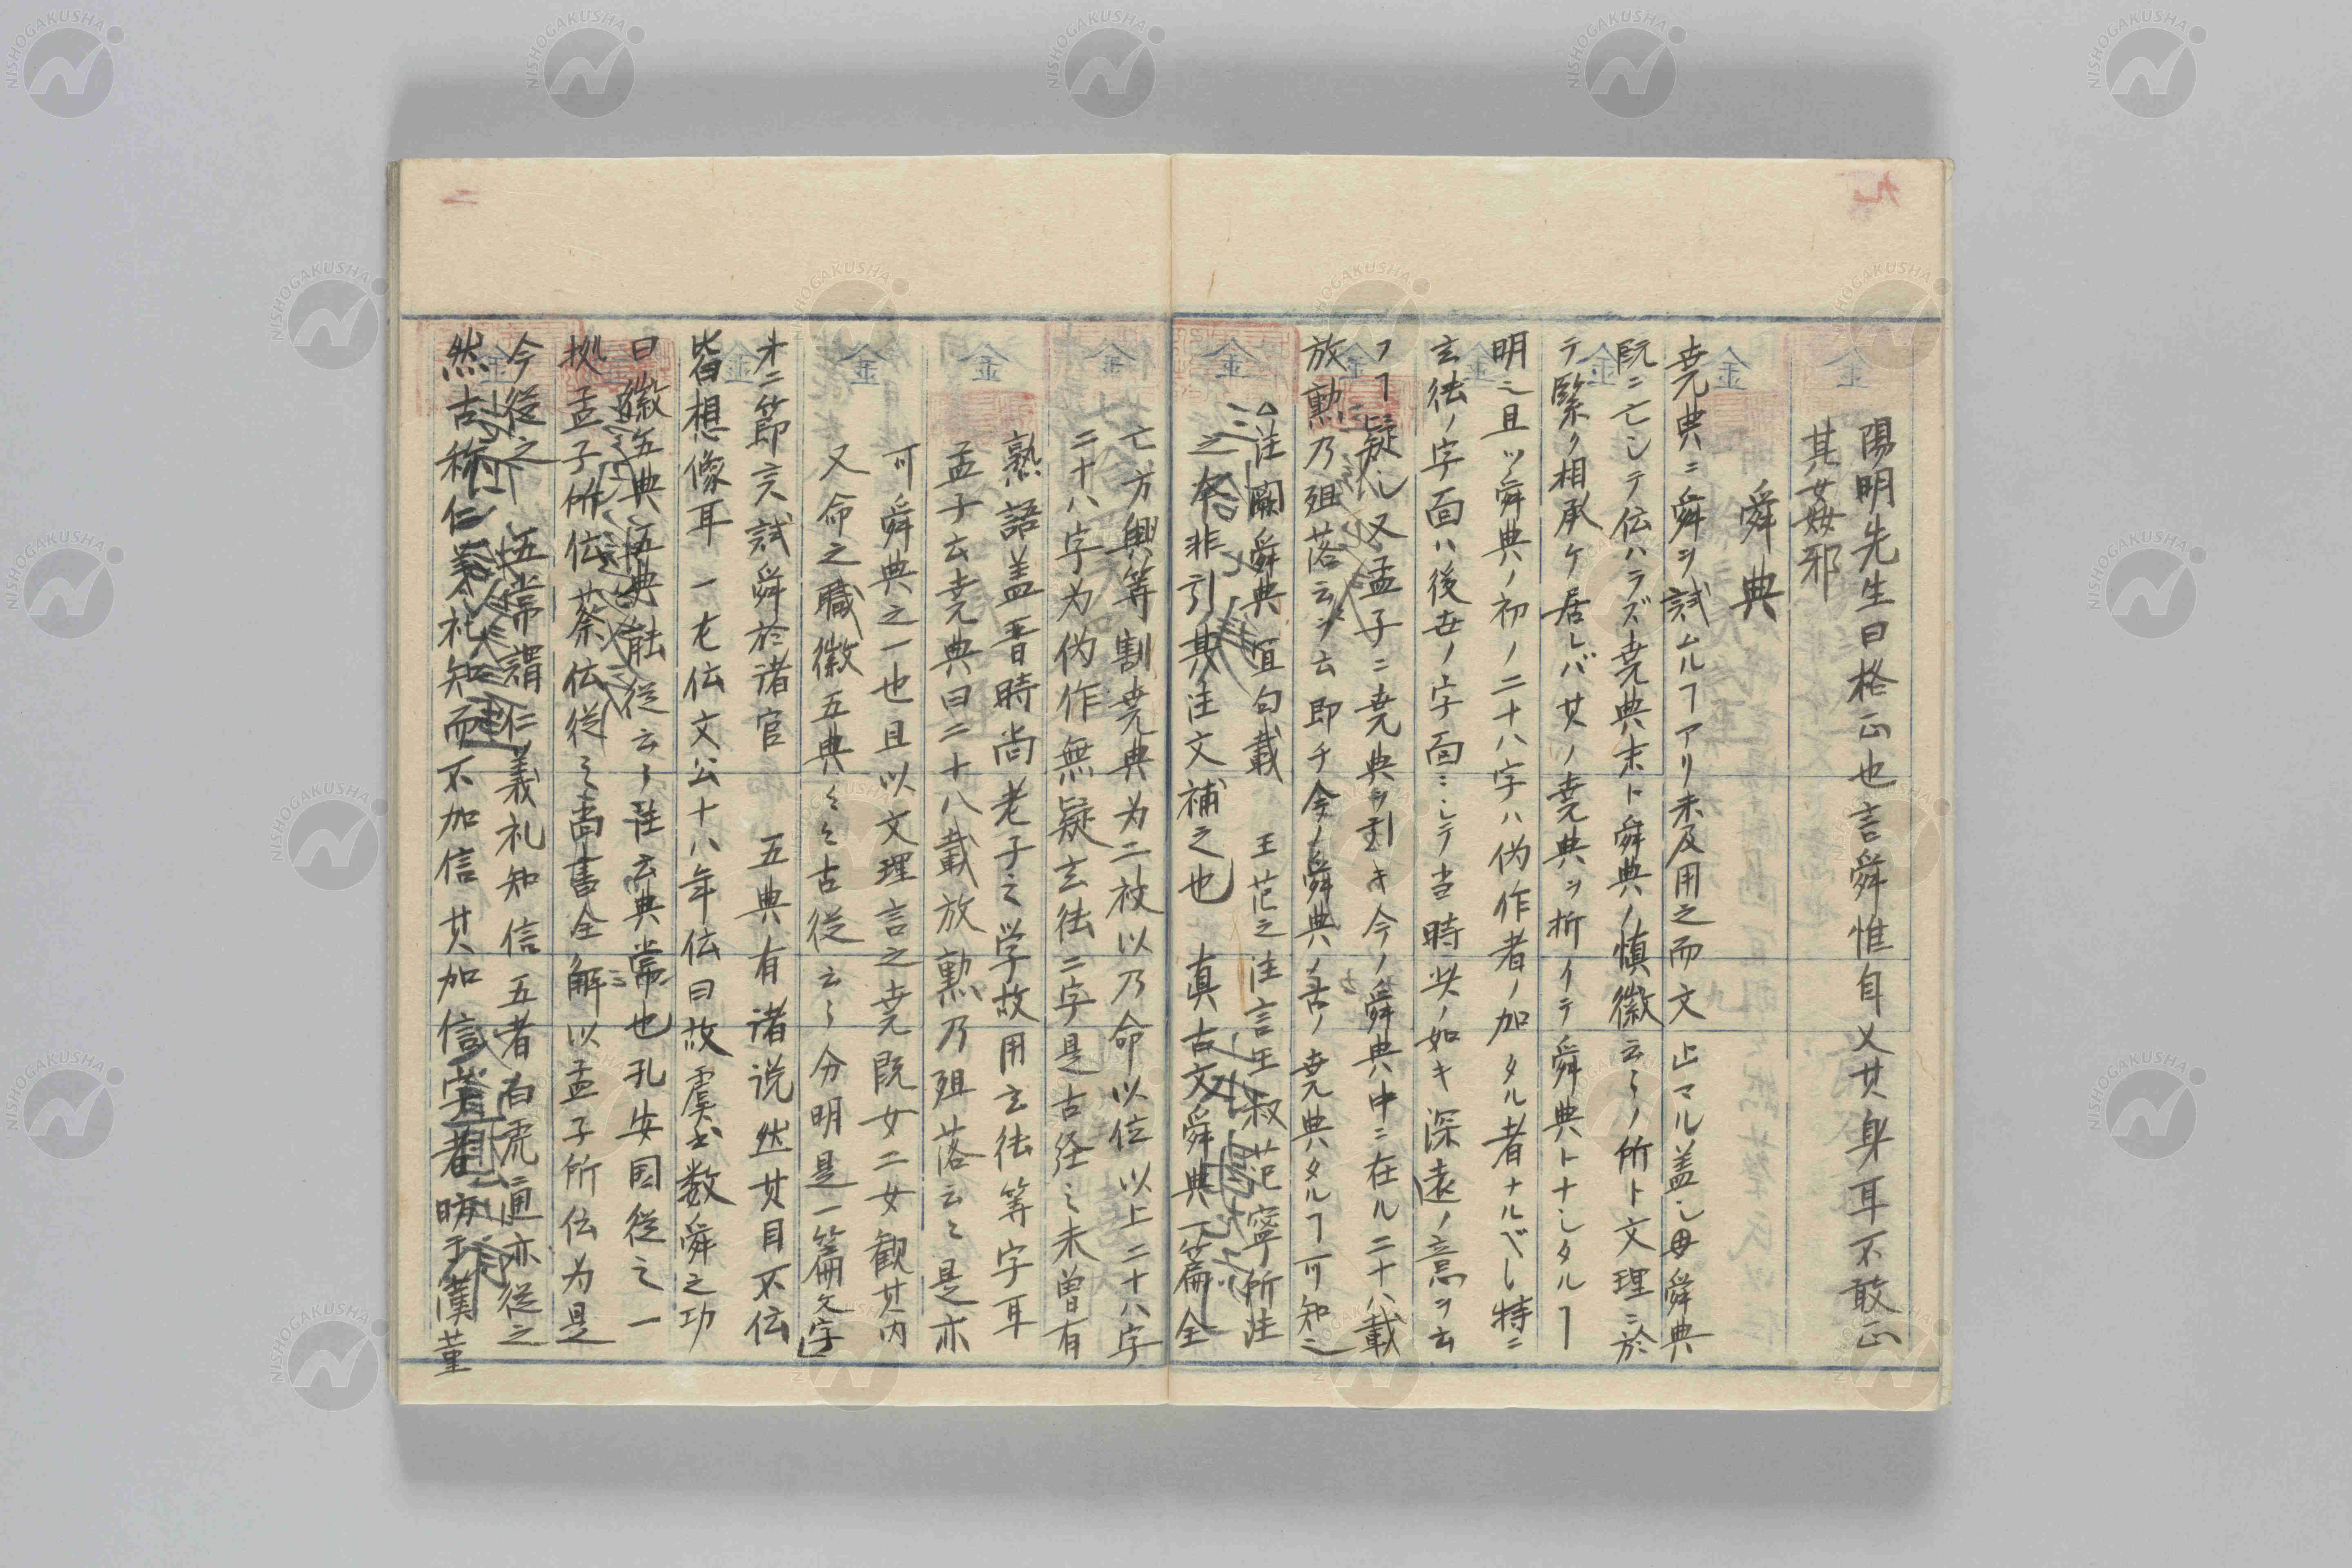 陽明先生曰格正也言舜惟自乂其身耳不敢正
其女姦邪
舜典
堯典ニ舜ヲ試ムルヿアリ未及用之而文止マル蓋シ毋舜典
既ニ亡シテ伝ハラズ堯典末ト舜典ノ慎徽云々ノ所ト文理ニ於
テ緊ク相承ケ居レバ其ノ堯典ヲ折イテ舜典トナシタルヿ
明ニ且ツ舜典ノ初ノ二十八字ハ偽作者ノ加タル者ナルベし特ニ
玄徳ノ字面ハ後世ノ字面ニシテ当時 如キ深遠ノ意ヲ云
フヿ疑し又孟子ニ堯典ヲ引キ今ノ舜典中ニ在ル二十八載
放勲乃殂落云々ヲ云即チ今ノ舜典ノ古ノ堯典タルヿ可知ニ
注闕舜典亘句載 王范之注言王叔范寧所注
之 非引其注文補之也 真古文舜典一篇全
亡方興等割堯典为二被以乃命以位以上二十八字
二十八字为偽作無疑玄徳二字是古経之未曽有
熟語蓋晋時尚老子之学故用玄徳等字耳
孟子云堯典曰二十八載放勲乃殂落云々是亦
可舜典之一也且以文理言之堯既女二女観其内
又命之職徽五典々々古従云々分明是一篇文字
オ二節言試舜於諸官 五典有諸説然其目不伝
皆想像耳 一左伝文公十八年伝曰故虞書数舜之功
曰徽五典五典能従云々注云典常也孔安囯従之一
拠孟子所伝蔡伝従之尚書全解以孟子所伝为是
今従之 五常謂仁義礼知信五者白虎通亦従之
然古称仁義礼知而不加信其加信 者昉于漢董